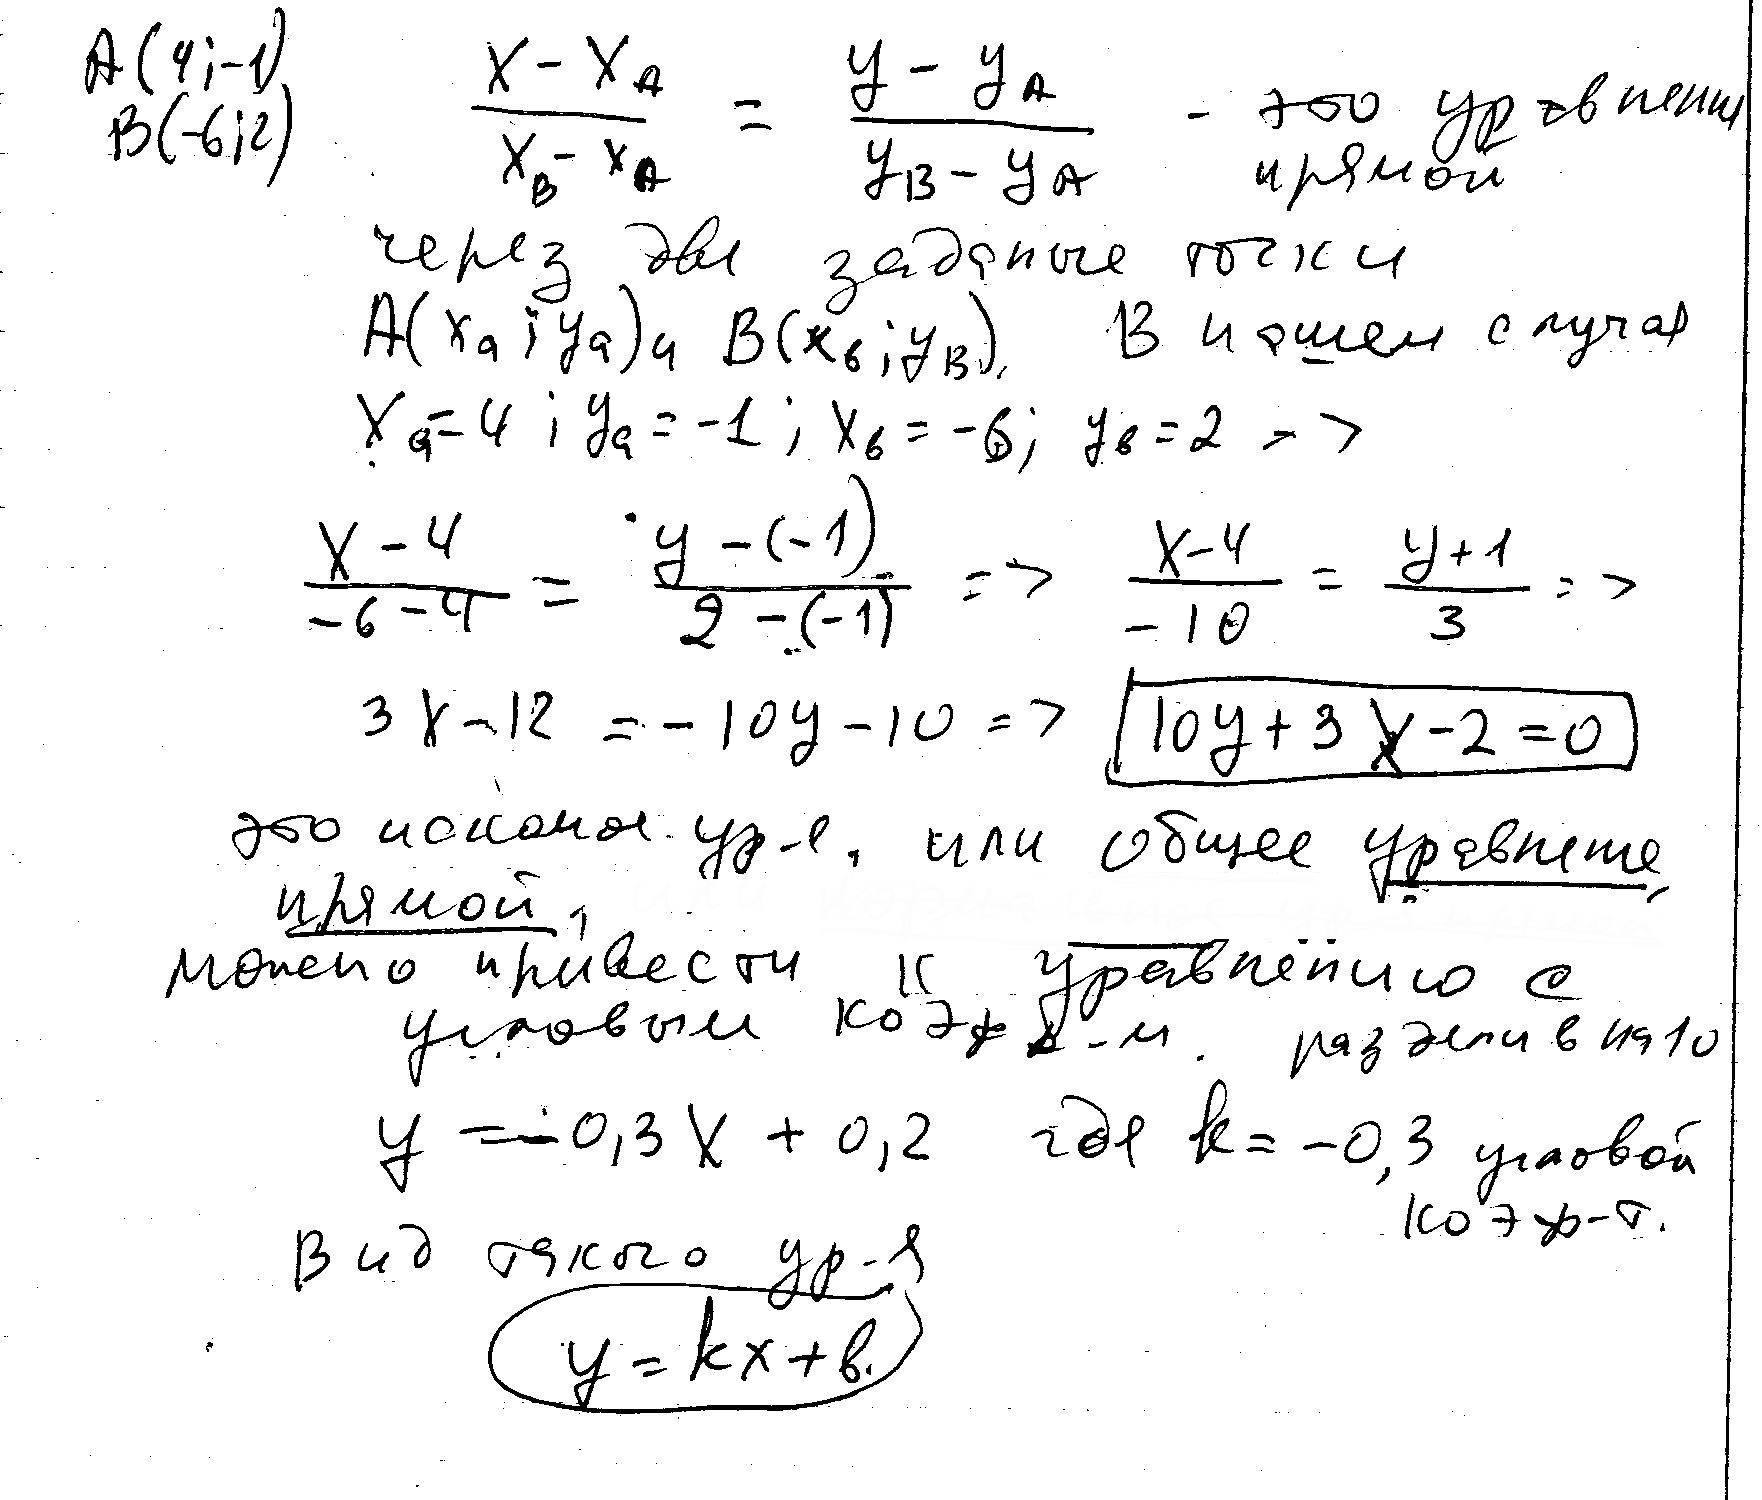 A(4;-1)
B(-6;2)
(x - x_A)/(x_B - x_A) = (y - y_A)/(y_B - y_A) - это уравнение
прямой
через две заданые точки
A(xа; yа) и B(xв; yB). В нашем случае
xа=4; yа=-1; xв=-6; yв=2 =>
(x-4)/(-6-4) = (y-(-1))/(2-(-1)) => (x-4)/(-10) = (y+1)/3 =>
3x-12 = -10y-10 => 10y+3x-2=0
это искомое ур-е, или общее уравнение
прямой,
можно привести к уравнению с
угловым коэфф-м. разделив на 10
y = -0,3x + 0,2 где k = -0,3 угловой
коэф-т.
Вид такого ур-я
y = kx+в.